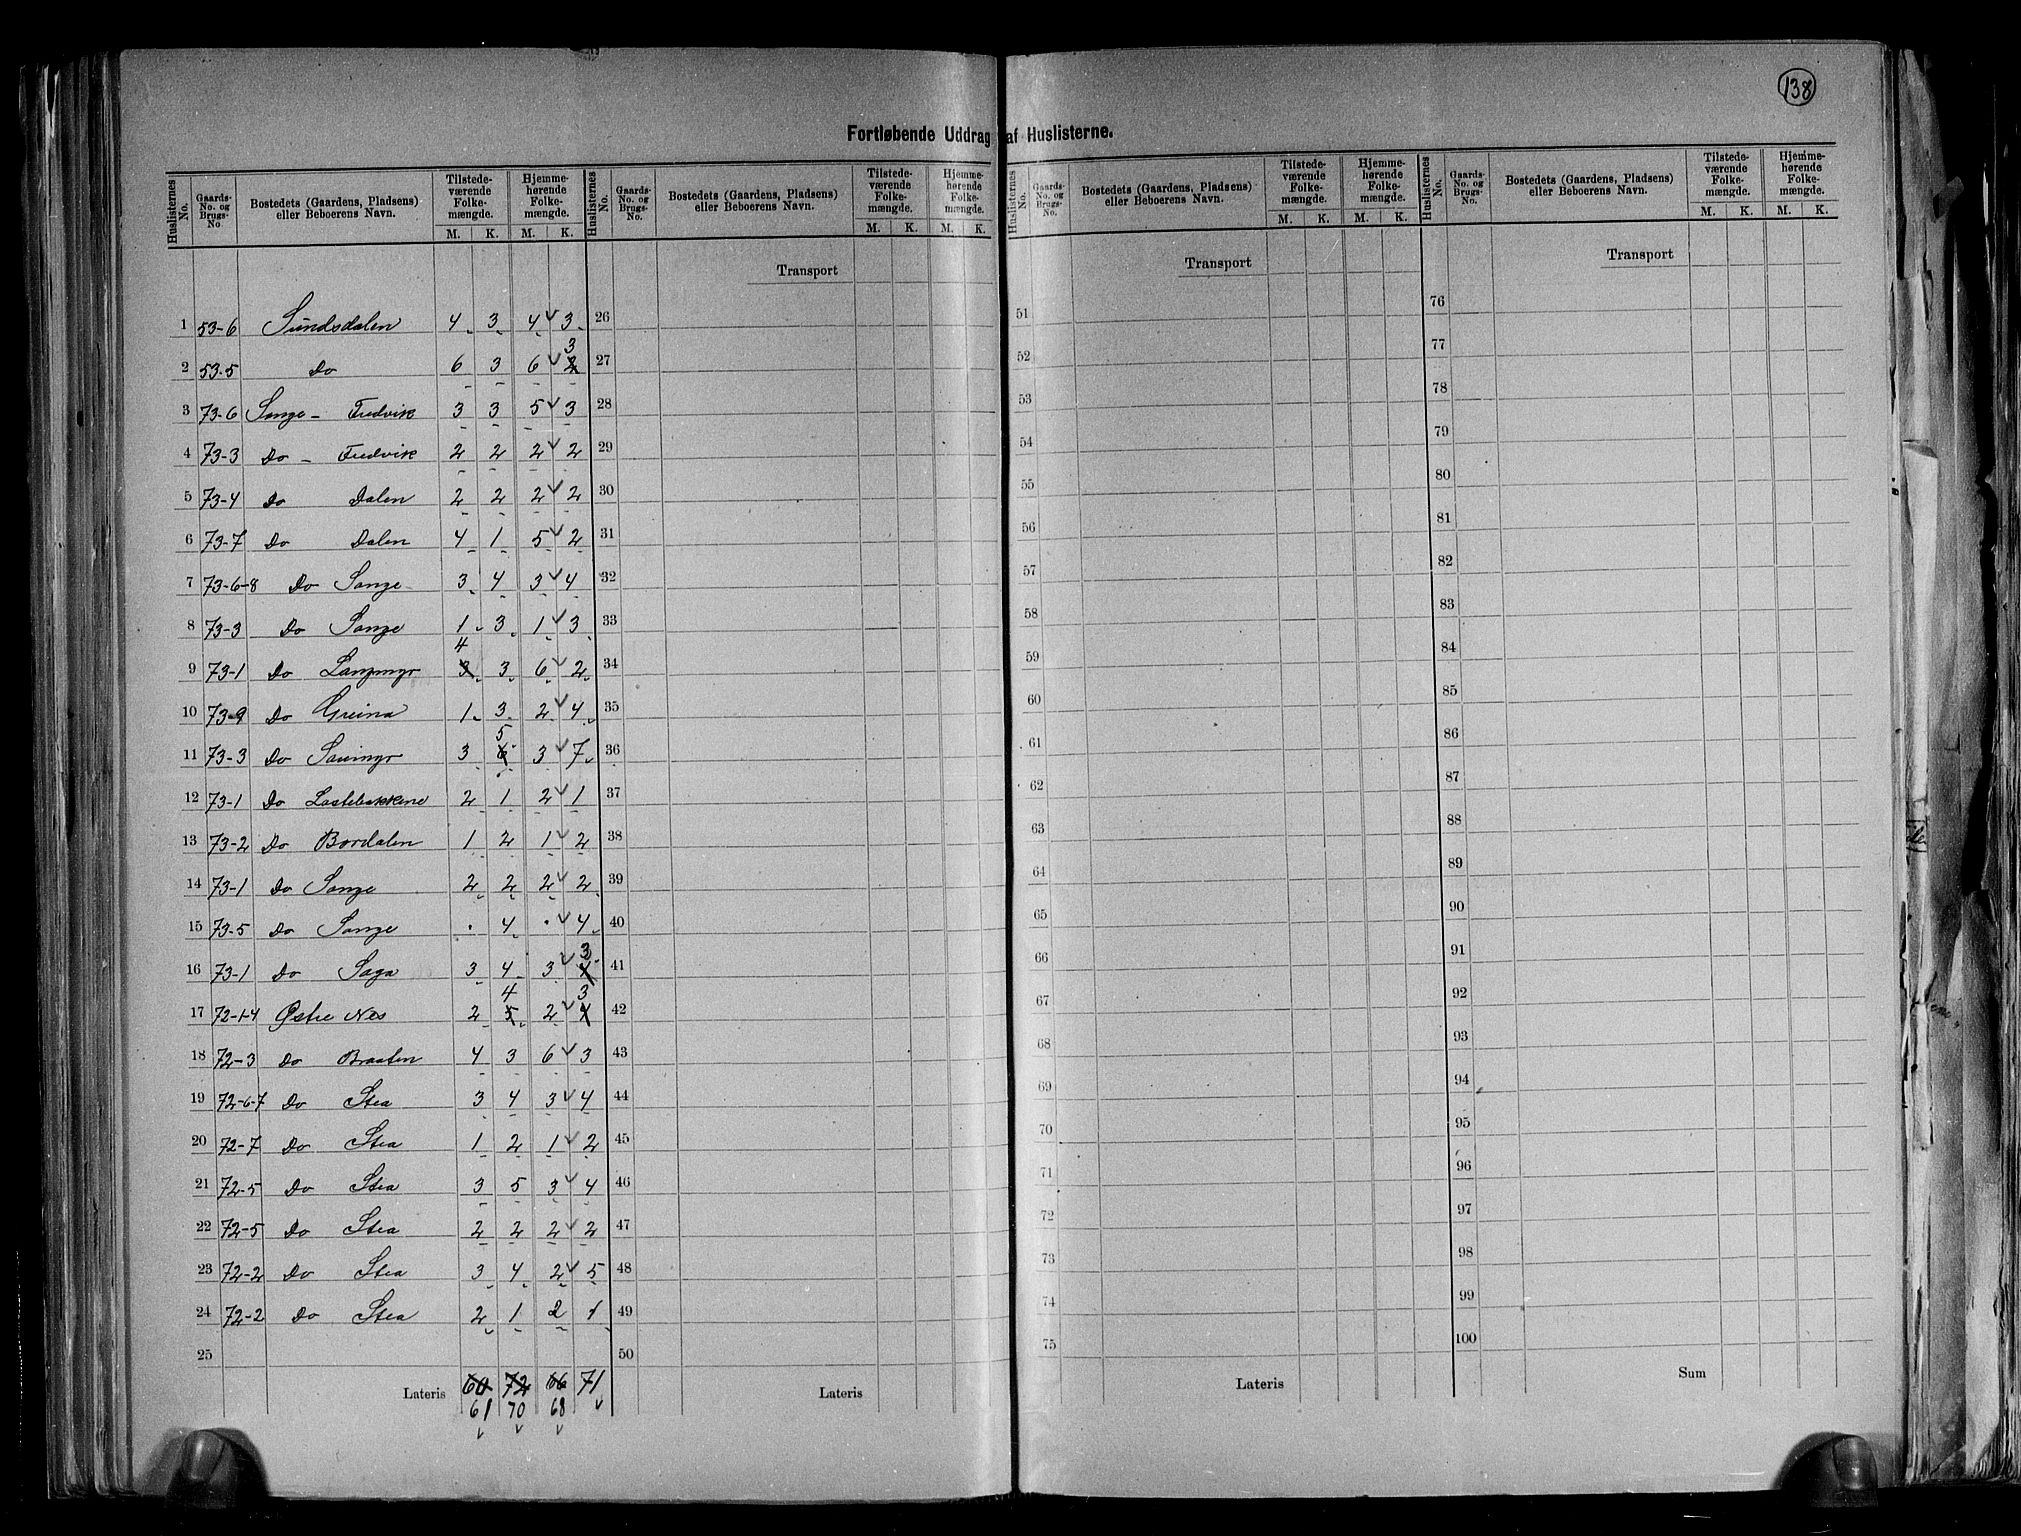 138
Fortløbende Uddrag af Huslisterne.
Huslisternes No. Gaards-No. og Brugs-No. Bostedets (Gaardens, Pladsens) eller Beboerens Navn. Tilstedeværende Folkemængde. M. K. Hjemmehørende Folkemængde. M. K.
Huslisternes No. Gaards-No. og Brugs-No. Bostedets (Gaardens, Pladsens) eller Beboerens Navn. Tilstedeværende Folkemængde. M. K. Hjemmehørende Folkemængde. M. K.
Huslisternes No. Gaards-No. og Brugs-No. Bostedets (Gaardens, Pladsens) eller Beboerens Navn. Tilstedeværende Folkemængde. M. K. Hjemmehørende Folkemængde. M. K.
Huslisternes No. Gaards-No. og Brugs-No. Bostedets (Gaardens, Pladsens) eller Beboerens Navn. Tilstedeværende Folkemængde. M. K. Hjemmehørende Folkemængde. M. K.
Transport Transport Transport
1 53-6 Sundsdalen 4 3 4 3 26 51 76
2 53-5 Do 6 3 6 2 3 27 52 77
3 73-6 Songe - Fredvik 3 3 5 3 28 53 78
4 73-3 Do - Fredvik 2 2 2 2 29 54 79
5 73-4 Do Dalen 2 2 2 2 30 55 80
6 73-7 Do Dalen 4 1 5 2 31 56 81
7 73-6-8 Do Songe 3 4 3 4 32 57 82
8 73-3 Do Songe 1 3 1 3 33 58 83
9 73-1 Do Langmyr 3 4 3 6 2 34 59 84
10 73-9 Do Greina 1 3 2 4 35 60 85
11 73-3 Do 3 6 5 3 7 36 61 86
12 73-1 Do Lastebakkene 2 1 2 1 37 62 87
13 73-2 Do Bordalen 1 2 1 2 38 63 88
14 73-1 Do Songe 2 2 2 2 39 64 89
15 73-5 Do Songe · 4 · 4 40 65 90
16 73-1 Do Saga 3 4 3 4 3 41 66 91
17 72-1-4 Østre Nes 2 5 4 2 4 3 42 67 92
18 72-3 Do Braaten 4 3 6 3 43 68 93
19 72-6-7 Do Stea 3 4 3 4 44 69 94
20 72-7 Do Stea 1 2 1 2 45 70 95
21 72-5 Do Stea 3 5 3 4 46 71 96
22 72-5 Do Stea 2 2 2 2 47 72 97
23 72-2 Do Stea 3 4 2 5 48 73 98
24 72-2 Do Stea 2 1 2 1 49 74 99
25 50 75 100
Lateris 60 72 66 71 Lateris Lateris Sum
61 70 68